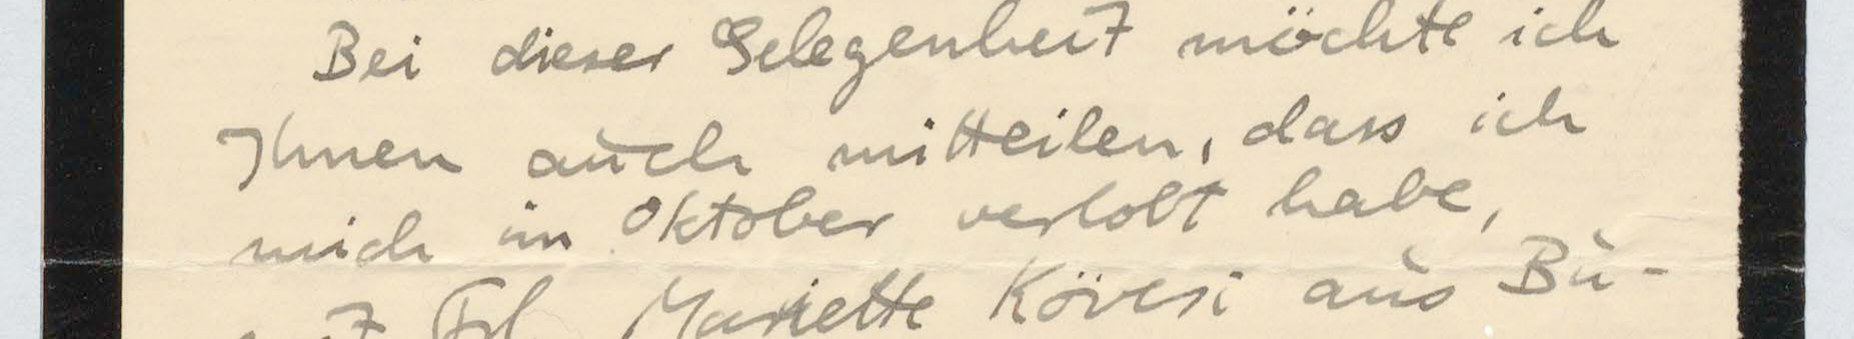 Bei dieser Gelegenheit möchte ich
Ihnen auch mitteilen, dass ich
mich im Oktober verlobt habe,
Frl. Mariette Kövesi aus Bu-